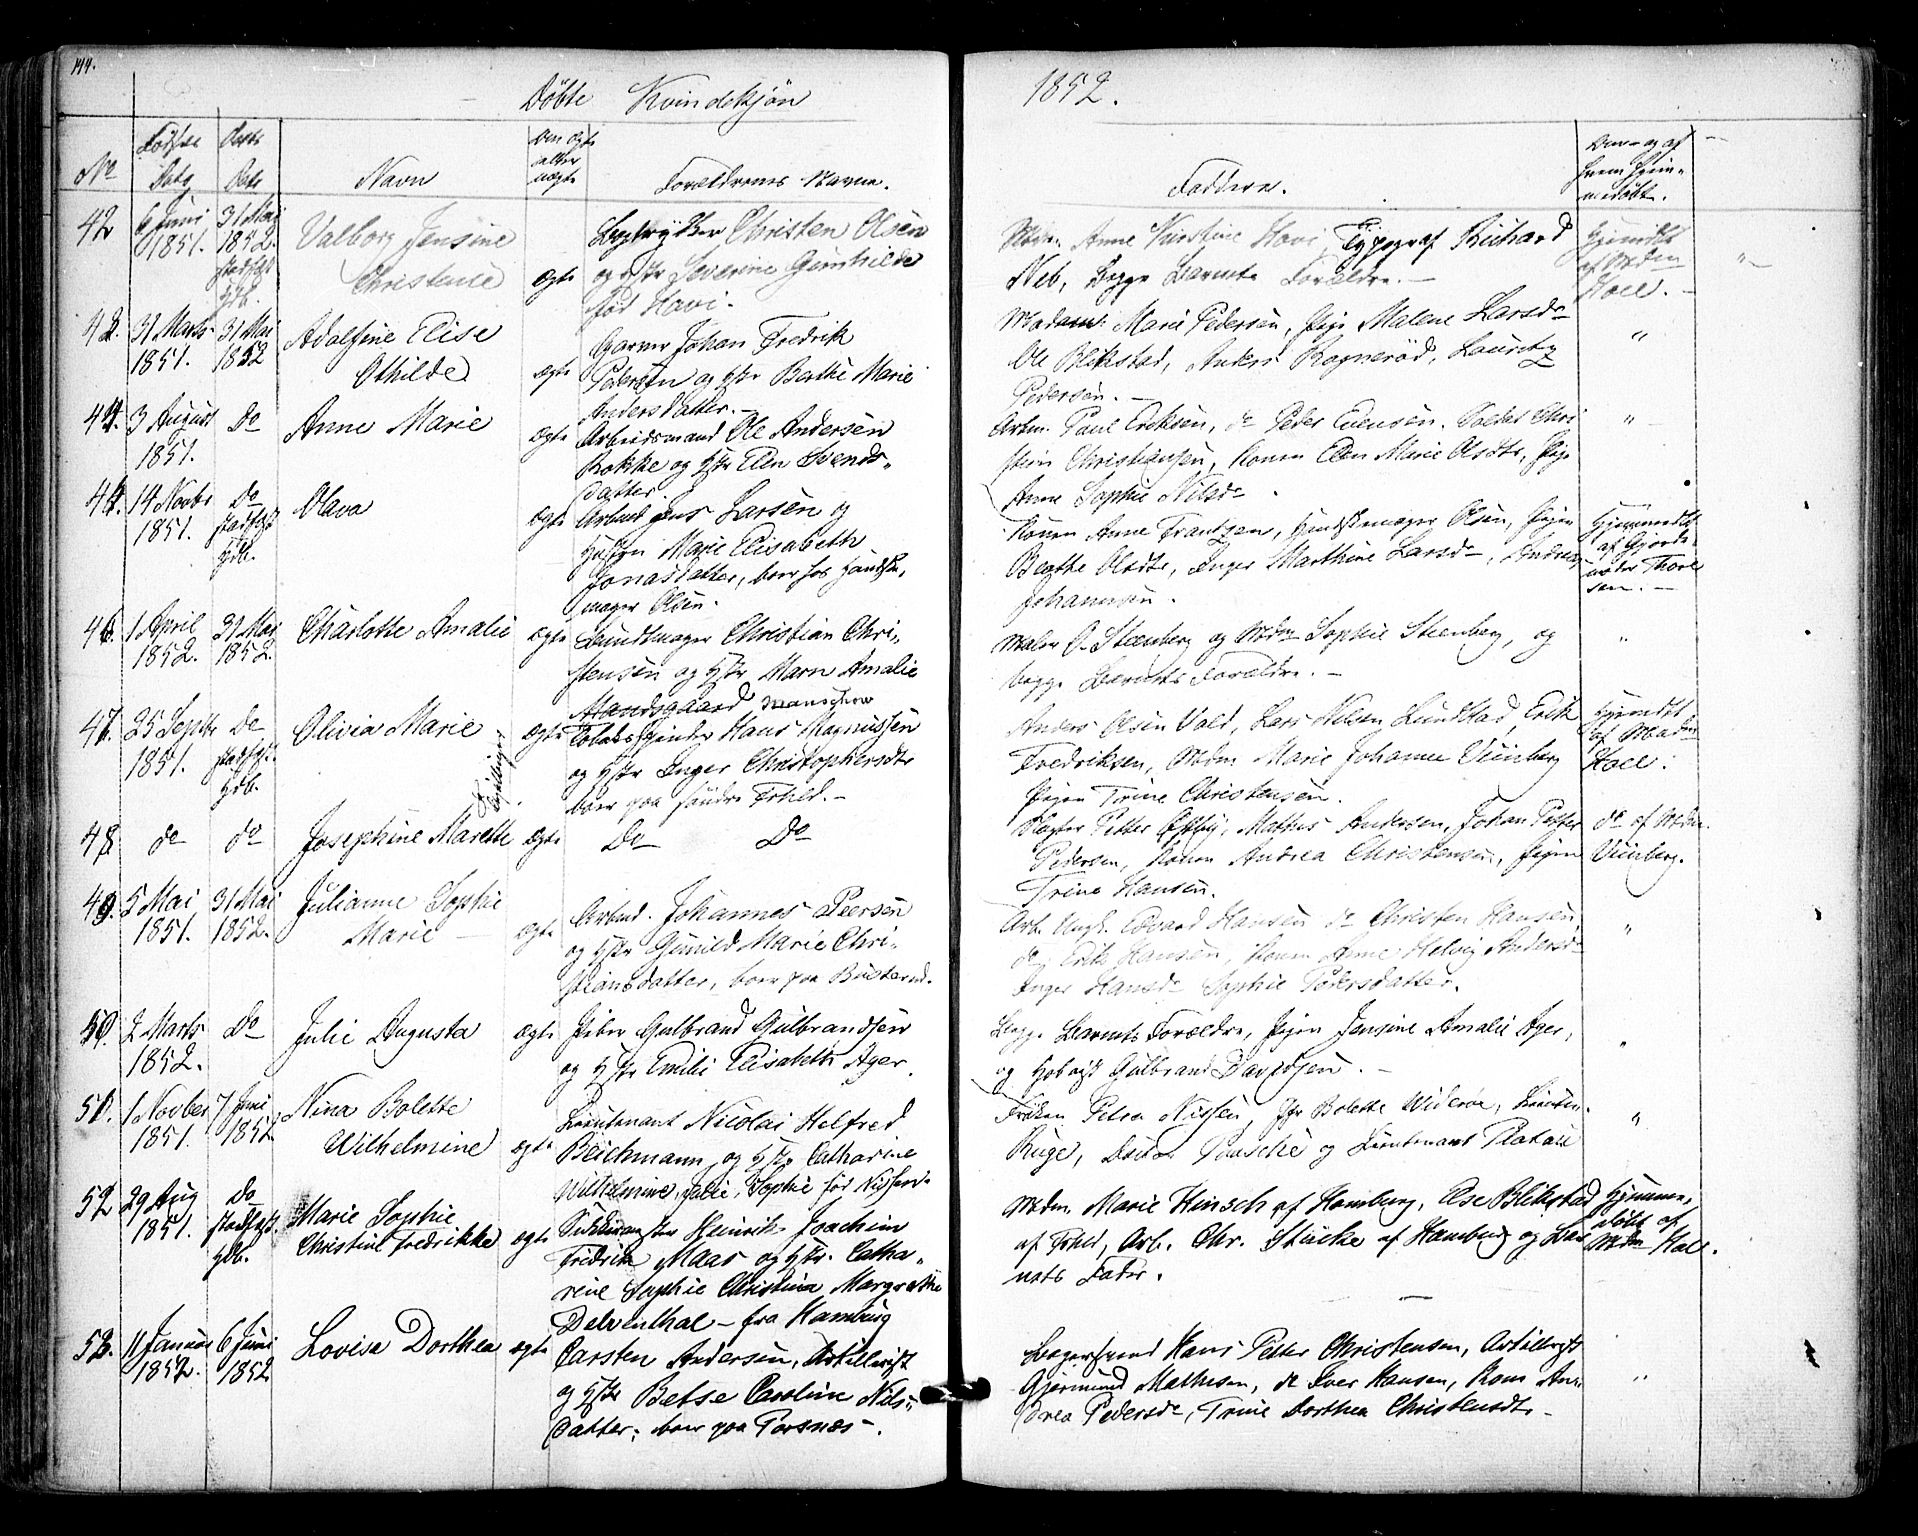 144.
Döbte Kvindekjön
1852.
No
Födsels Datg
Daabs Dato
Navn
Om Ægte eller uægte
Forældrenes Navne.
Faddere.
Naar og af hvem hjem-medöbt.
42
6 Juni 1851.
31 Mai 1852. stadfæst hdb.
Valborg Jensine
Christense
ægte
Bogtrykker Christen Olsen
og Hstr Severine Gunhilde
född Havi.
Mdm. Anne Kirstine Havi Typograf Richard
Neb, Begge Barnets Forældre. —
Hjemdbt af Mdm Holl. —
43.
31 Marts 1851.
31 Mai 1852
Adolfine Elise
Othilde
ægte
Garver Johan Fredrik
Pedersen og Hstr Berthe Marie
Andersdatter. —
Madam Marie Pedersen, Pige Malene Larsdr
Ole Blikstad, Anders Rognerød, Lauritz
Pedersen. —
"
44.
3 August 1851.
Do
Anne Marie
ægte
Arbeidsmand Ole Andersen
Bokke og Hstr Elen Svends-
datter.
Arbm. Paul Eriksen, do Peder Evensen. Soldat Chri-
stian Christiansen, Konen Elen Marie Olsdtr, Pige
Anne Sophie Nilsdr.
"
45.
14 Novbr 1851.
Do stadfæst hdb.
Olava
ægte
Arbmd Jens Larsen og
Hustru Marie Elisabeth
Jonasdatter, boer hos Handske-
mager Olsen.
Konen Anne Frantzen, Handskemager Olsen, Pigen
Beathe Olsdtr, Inger Marthine Larsdr, Andreas
Johannsen.
Hjemmedbt af Gjorde-moder Thorsen. —
46.
1 April 1852.
31 Mai 1852.
Charlotte Amalie
ægte
Bundtmager Christian Chri-
stensen og Hstr Maren Amalie
Mandsgaard
Maler O. Steenberg og Mdm Sophie Steenberg, og
begge Barnets Forældre. —
"
47.
25 Septbr 1851.
Do stadfæst. hdb.
Olivia Marie
Tvillinger
ægte
Tobaksspinder Hans Magnussen
og Hstr Inger Christophersdtr
boer paa söndre Frhld. —
Anders Olsen Vold, Lars Nilsen Lundstad, Erik
Fredriksen, Mdm Marie Johanne Viinberg
Pigen Trine Christensen.
Hjemdbt af Madm Holl.
48
do
do
Josephine Marethe
ægte
Do Do
Slagter Petter Østby, Mathis Andersen, Johan Petter
Pedersen, Konen Andrea Christensen, Pigen
Trine Hansen.
do af Mdm. Viinberg.
49.
5 Mai 1851.
31 Mai 1852.
Julianne Sophie
Marie —
ægte
Arbmd. Johannes Peersen
og Hstr Gunild Marie Chri-
stiansdatter, boer paa Busterud.
Arb. Ungk. Edvard Hansen do Christen Hansen
do Erik Hansen, Konen Anne Helvig Andersdr
Inger Hansdr Sophie Pedersdatter.
"
50.
2 Marts 1852.
Do
Julie Augusta
ægte
Piber Gulbrand Gulbrandsen
og Hstr Emilie Elisabeth Ager.
Begge Barnets Forældre, Pigen Jensine Amalie Ager,
og Hoboist Gulbrand Davidsen. —
"
51.
1 Novber 1851.
7 Juni 1852.
Nina Bolette
Wilhelmine
ægte
Lieutenant Nicolai Helfred
Beichmann og Hstr Catharine
Wilhelmine, Julie, Sophie föd Nissen.
Fröken Petra Nissen, Fr Bolette Wideröe, Lieuten.
Ruge, Doctor Paasche og Lieutenant Platou
"
52
29 Aug 1851.
Do stadfæst hdb.
Marie Sophie
Christine Fredrikke
ægte
Heinrik Joachim
Fredrik Maas og Hstr. Catha-
rine Sophie Christina Margrethe
Delventhal — fra Hamburg
Mdm. Marie Hinsch af Hamburg, Else Blikstad
af Frhld, Arb. Chr. Stücke af Hamburg og Bar-
nets Fader.
Hjemme-döbt af Mdm Holl.
53.
11 Januar 1852.
6 Juni 1852
Lovise Dorthea
ægte
Carsten Andersen, Artillerist
og Hstr Betse Caroline Nils-
datter, boer paa Torsnæs —.
Bagersvend Hans Petter Christensen, Artillerist
Gjermund Mathisen, do Iver Hansen, Kone An-
drea Pedersdr, Trine Dorthea Christensdtr —
"